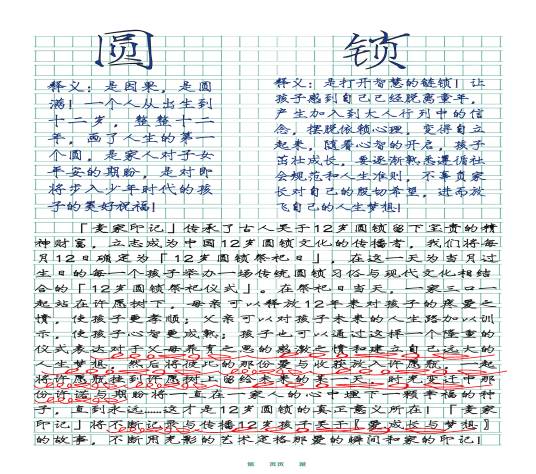 圆
释义：是因果，是圆
满！一个人从出生到
十二岁，整整十二
年，画了人生的第一
个圆，是家人对子女
平安的期盼，是对即
将步入少年时代的孩
子的美好祝福！
锁
释义：是打开智慧的链锁！让
孩子感到自己已经脱离童年，
产生加入到大人行列中的信
念，摆脱依赖心理，变得自立
起来，随着心智的开启，孩子
茁壮成长，要逐渐熟悉遵循社
会规范和人生准则，不辜负家
长对自己的殷切希望，进而放
飞自己的人生梦想！
「麦家印记」传承了古人关于12岁圆锁留下宝贵的精
神财富，立志成为中国12岁圆锁文化的传播者，我们将每
月12日确定为「12岁圆锁祭祀日」，在这一天为当月过
生日的每一个孩子举办一场传统圆锁习俗与现代文化相结
合的「12岁圆锁祭祀仪式」。在祭祀日当天，一家三口一
起站在许愿树下，母亲可以释放12年来对孩子的疼爱之
情，使孩子更孝顺；父亲可以对孩子未来的人生路加以训
示，使孩子心智更成熟；孩子也可以通过这样一个隆重的
仪式表达对于父母养育之恩的感激之情和建立自己远大的
人生梦想；然后将彼此的那份爱与收获放入许愿瓶，一起
将许愿瓶挂到许愿树上留给未来的某一天，时光变迁中那
份许诺与期盼将一直在一家人的心中埋下一颗幸福的种
子，直到永远……这才是12岁圆锁的真正意义所在！「麦家
印记」将不断记录与传播12岁孩子关于『爱成长与梦想』
的故事，不断用光影的艺术定格那爱的瞬间和家的印记！